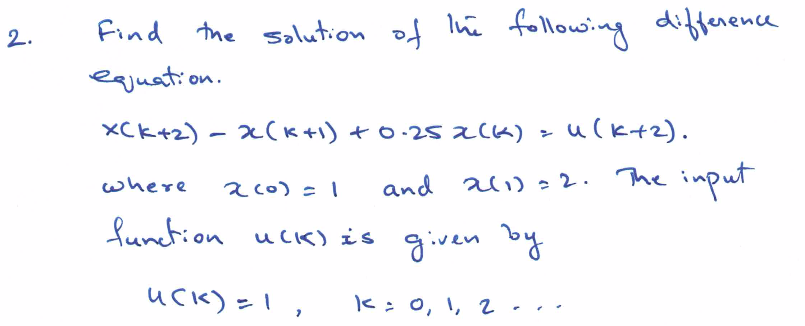 2. Find the solution of the following difference
equation.
x(k+2) - x(k+1) + 0.25 x(k) = u(k+2).
where x(0) = 1 and x(1) = 2. The input
function u(k) is given by
u(k) = 1, k = 0, 1, 2 ...